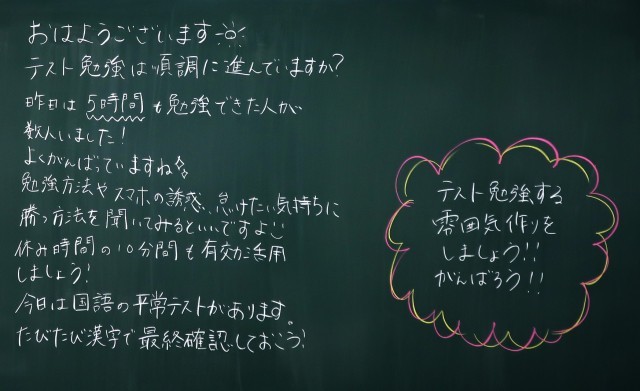 おはようございます
テスト勉強は順調に進んでいますか?
昨日は5時間も勉強できた人が
数人いました!
よくがんばっていますね
勉強方法やスマホの誘惑、怠けたい気持ちに
勝つ方法を聞いてみるといいですよ
休み時間の10分間も有効活用
しましょう!
今日は国語の平常テストがあります。
たびたび漢字で最終確認しておこう!
テスト勉強する
雰囲気作りを
しましょう!!
がんばろう!!